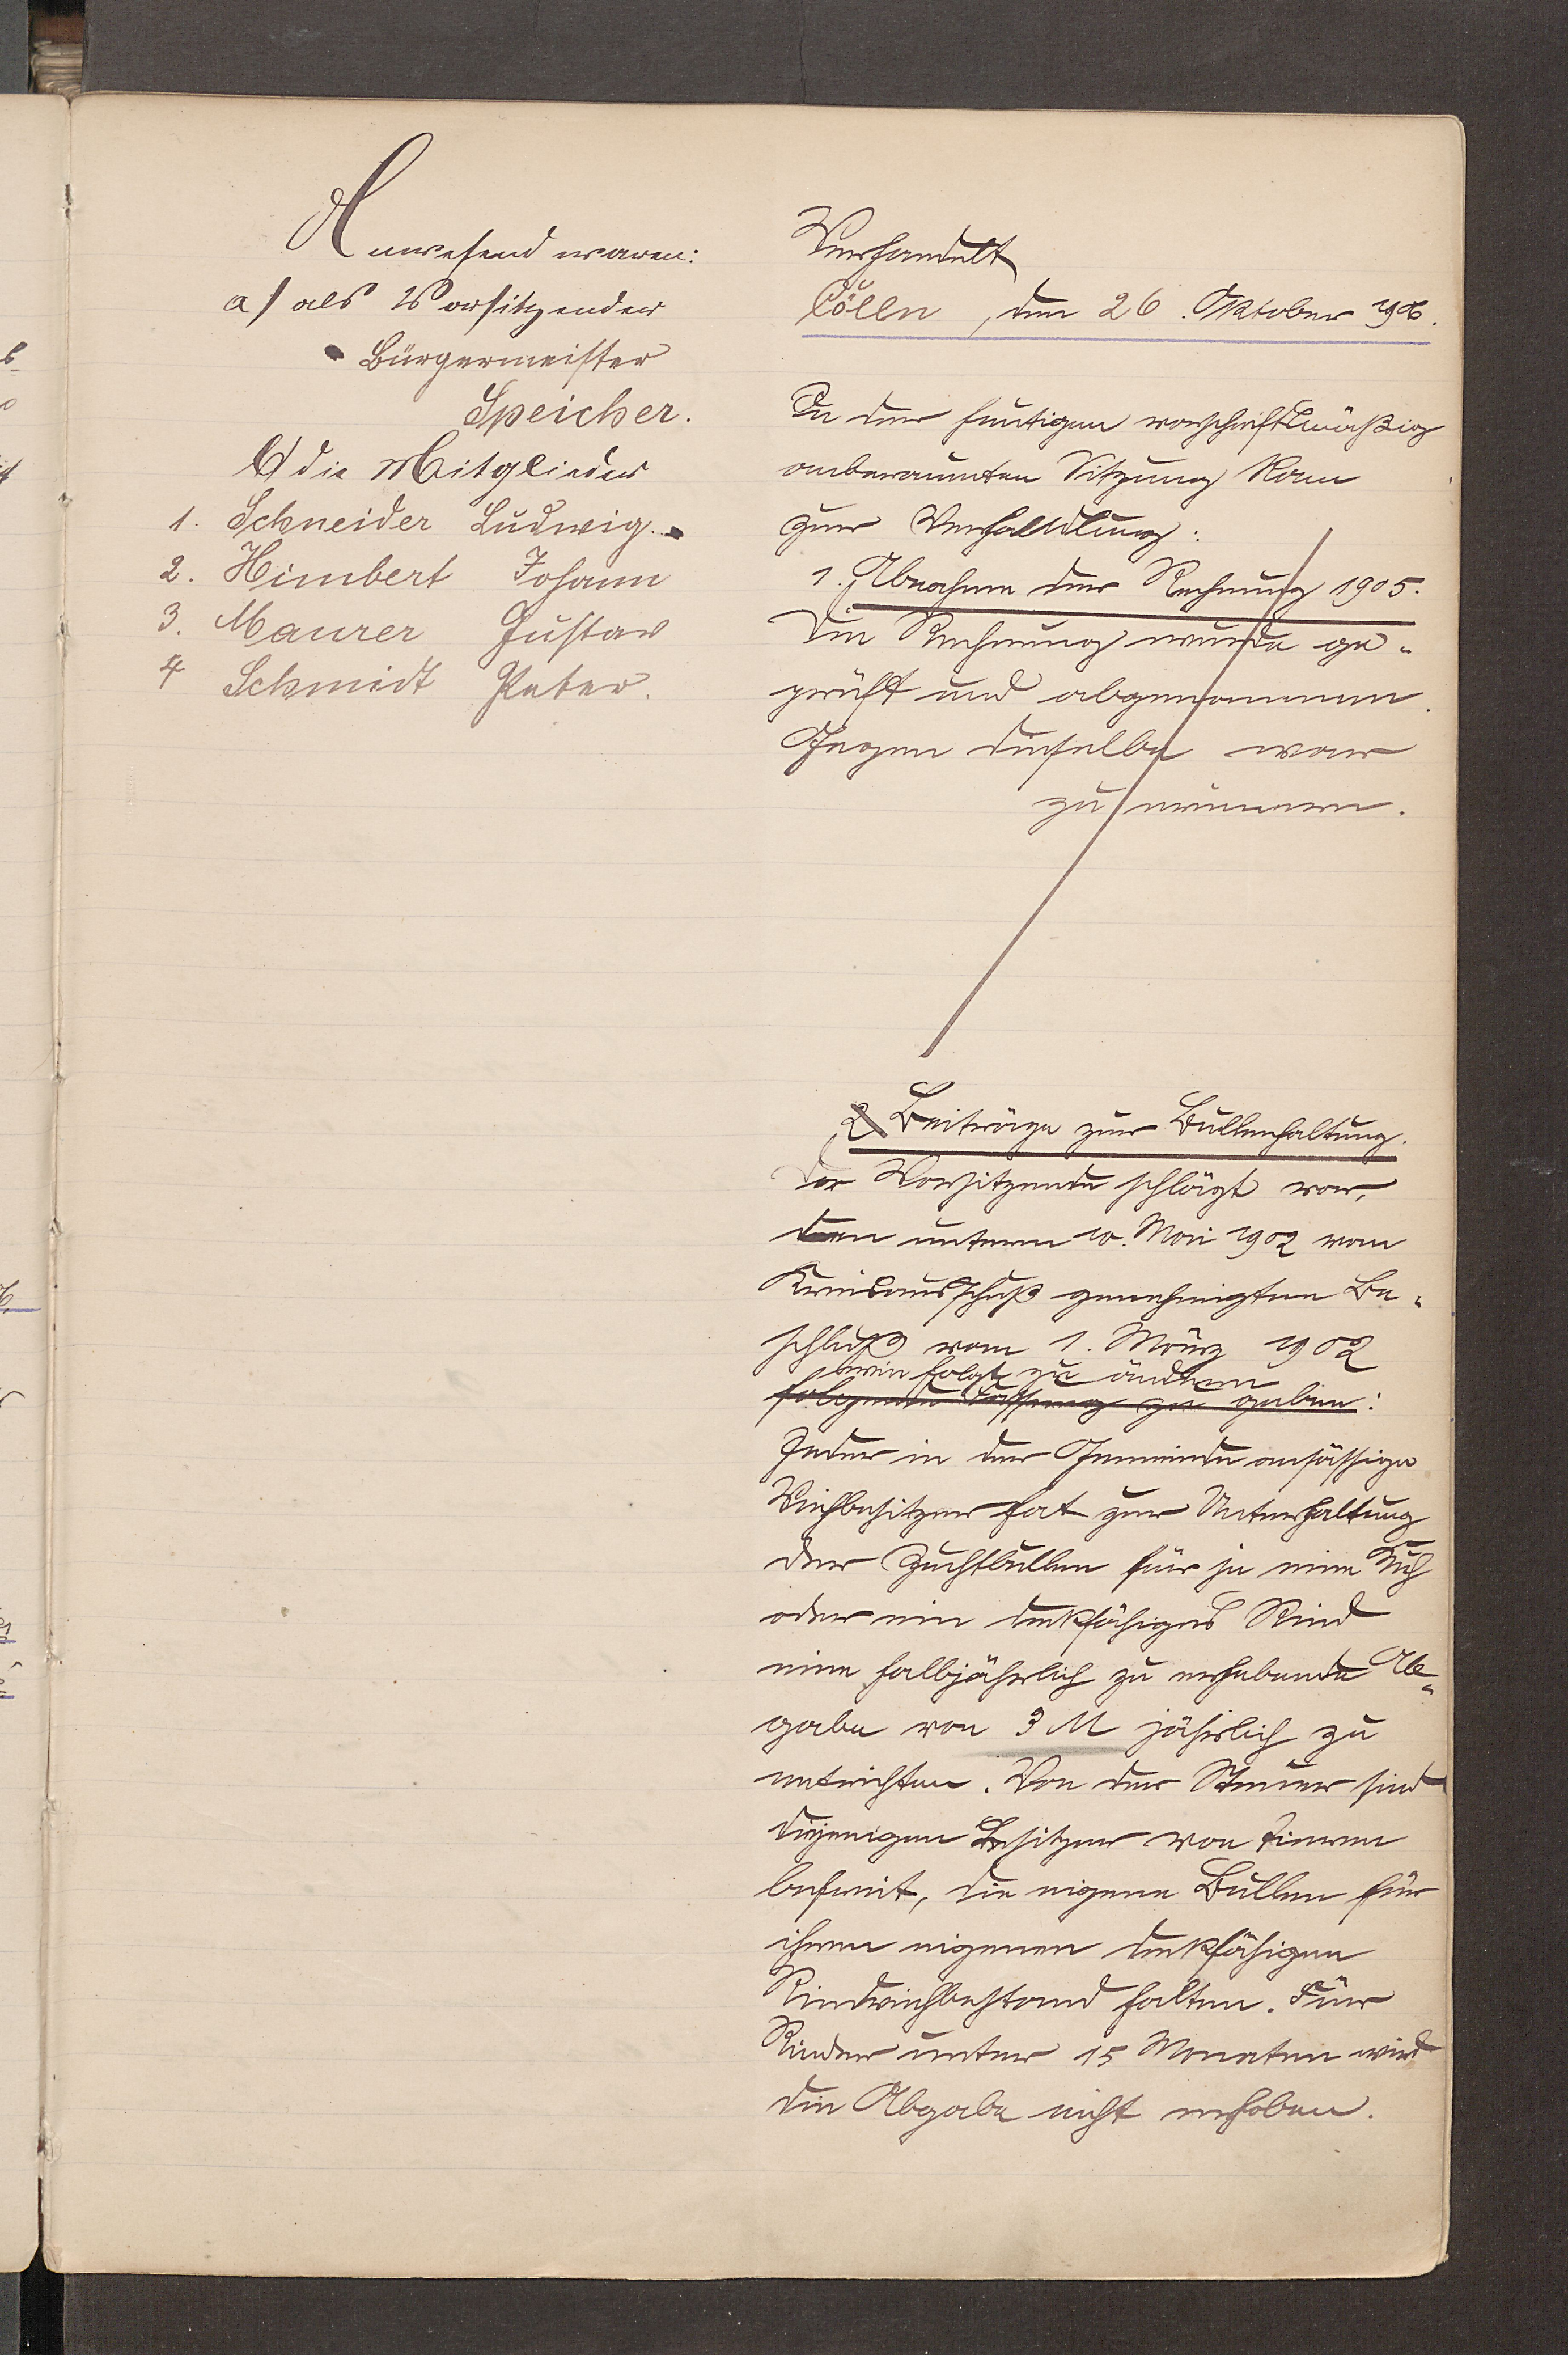 Anwesend waren:
a) als Vorsitzender
Bürgermeister
Speicher.
b) die Mitglieder
1. Schneider Ludwig.
2. Himbert Johann
3. Maurer Gustav
4 Schmidt Peter.
Verhandelt
Cölln, den 26. Oktober 1906.
In der heutigen vorschriftsmäßig
anberaumten Sitzung kam
zur Verhandlung:
1. Abnahme der Rechnung 1905.
Die Rechnung wurde ge-
prüft und abgenommen.
Gegen dieselbe war
zu erinnern.
2. Beiträge zur Bullenhaltung.
Der Vorsitzende schlägt vor,
den unterm 10. Mai 1902 vom
Kreisausschuß genehmigten Be-
schluß vom 1. März 1902
wie folgt zu ändern
folgende Fassung zu geben:
Jeder in der Gemeinde ansässige
Viehbesitzer hat zur Unterhaltung
der Zuchtbullen für je eine Kuh
oder ein deckfähiges Rind
eine halbjährlich zu erhebende Ab-
gabe von 3 M jährlich zu
entrichten. Von der Steuer sind
diejenigen Besitzer von Tieren
befreit, die eigene Bullen für
ihren eigenen deckfähigen
Rindviehbestand halten. Für
Rinder unter 15 Monaten wird
die Abgabe nicht erhoben.